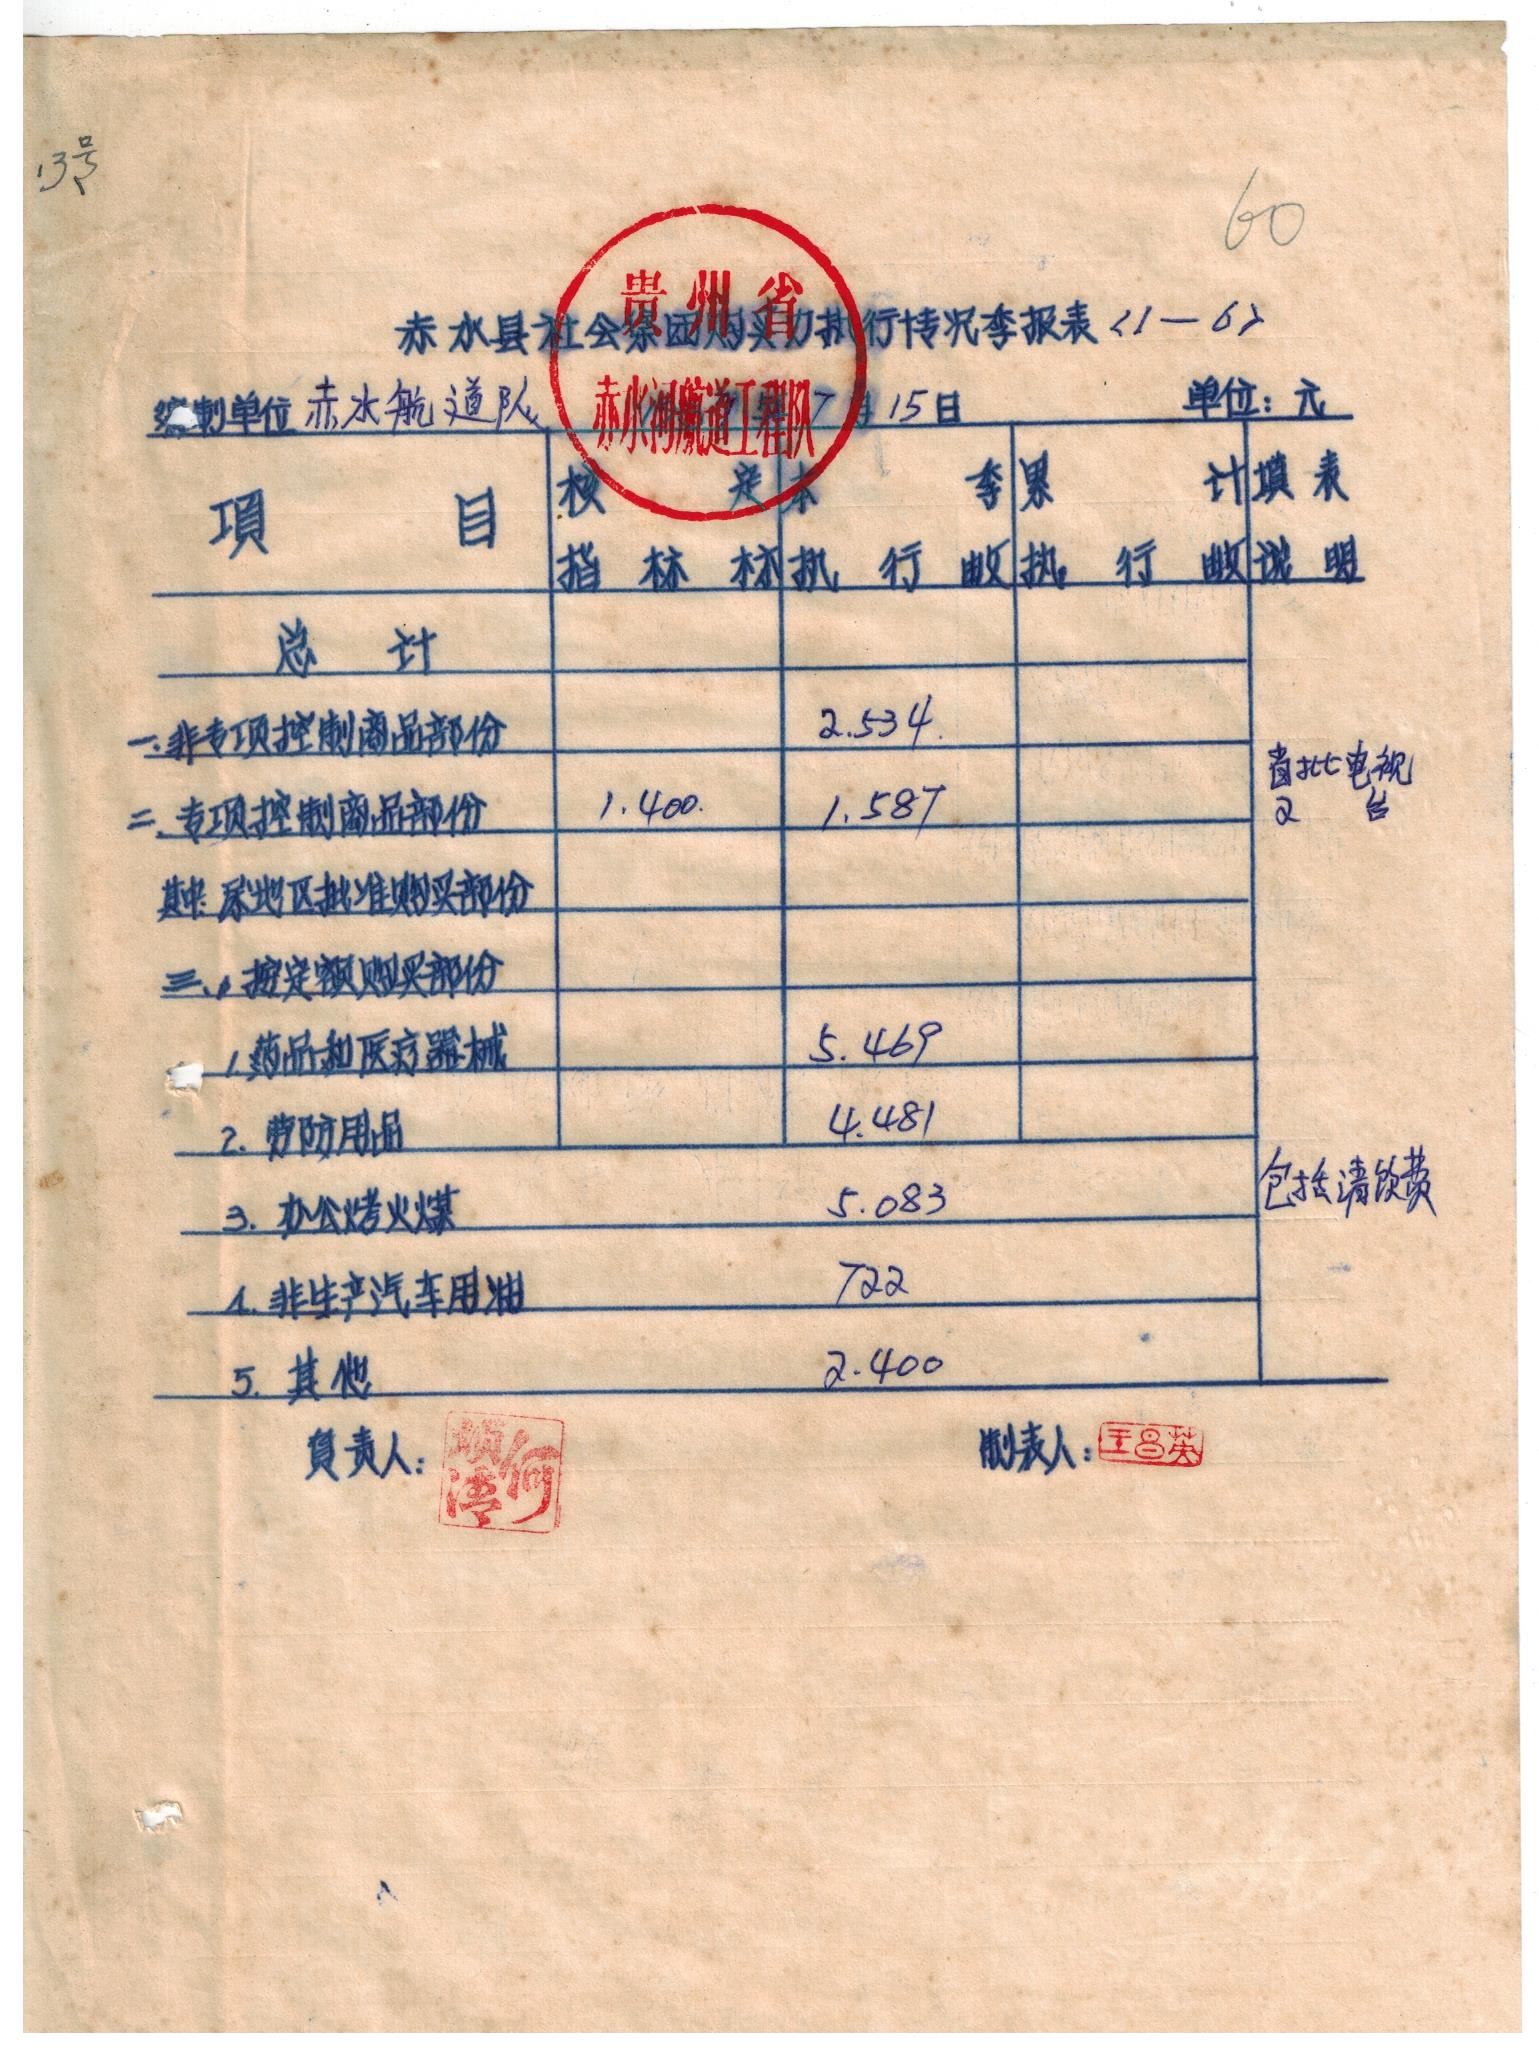 13号
60
贵州省
赤水河航道工程队
赤水县社会集团购买力执行情况季报表<1-6>
编制单位 赤水航道队 7月15日 单位：元
项目 核定指标 本季执行 累计执行 填表说明
总计
一.非专项控制商品部份 2.534.
二.专项控制商品部份 1.400. 1.587 省批电视2台
其中 地区批准购买部份
三、按定额购买部份
1.药品和医疗器械 5.469
2.劳防用品 4.481
3.办公烤火煤 5.083 包括清饮费
4.非生产汽车用油 722
5.其他 2.400
負责人： 制表人：王昌英